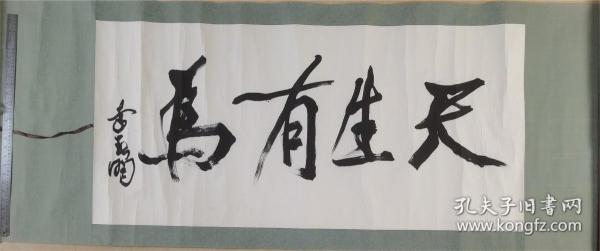 天生有為
孔夫子旧書网
www.kongfz.com